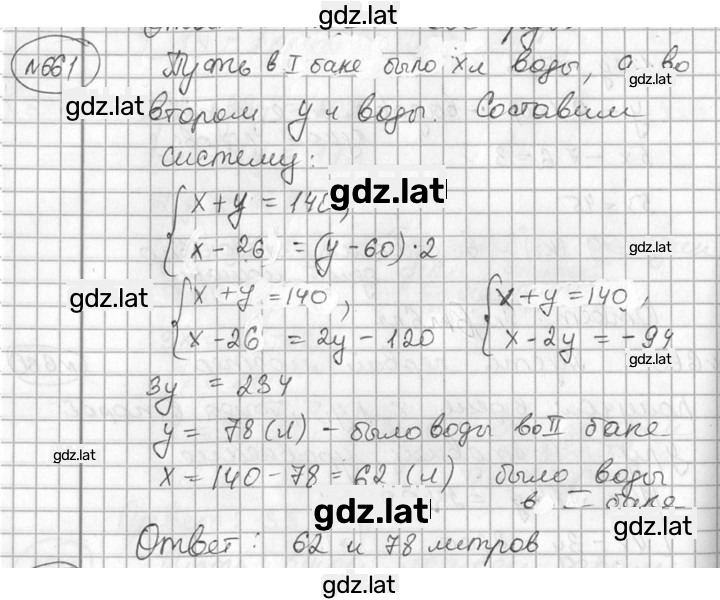 gdz.lat
№661 Пусть в I баке было x л воды, а во
gdz.lat
gdz.lat втором y л воды. Составим
систему:
gdz.lat
x + y = 140,
x - 26 = (y - 60) · 2
gdz.lat
gdz.lat
x + y = 140, x + y = 140,
x - 26 = 2y - 120 x - 2y = - 94
gdz.lat
3y = 234
y = 78 (л) - было воды во II баке
gdz.lat
x = 140 - 78 = 62 (л) было воды
в I баке
gdz.lat
gdz.lat
Ответ: 62 и 78 метров
gdz.lat